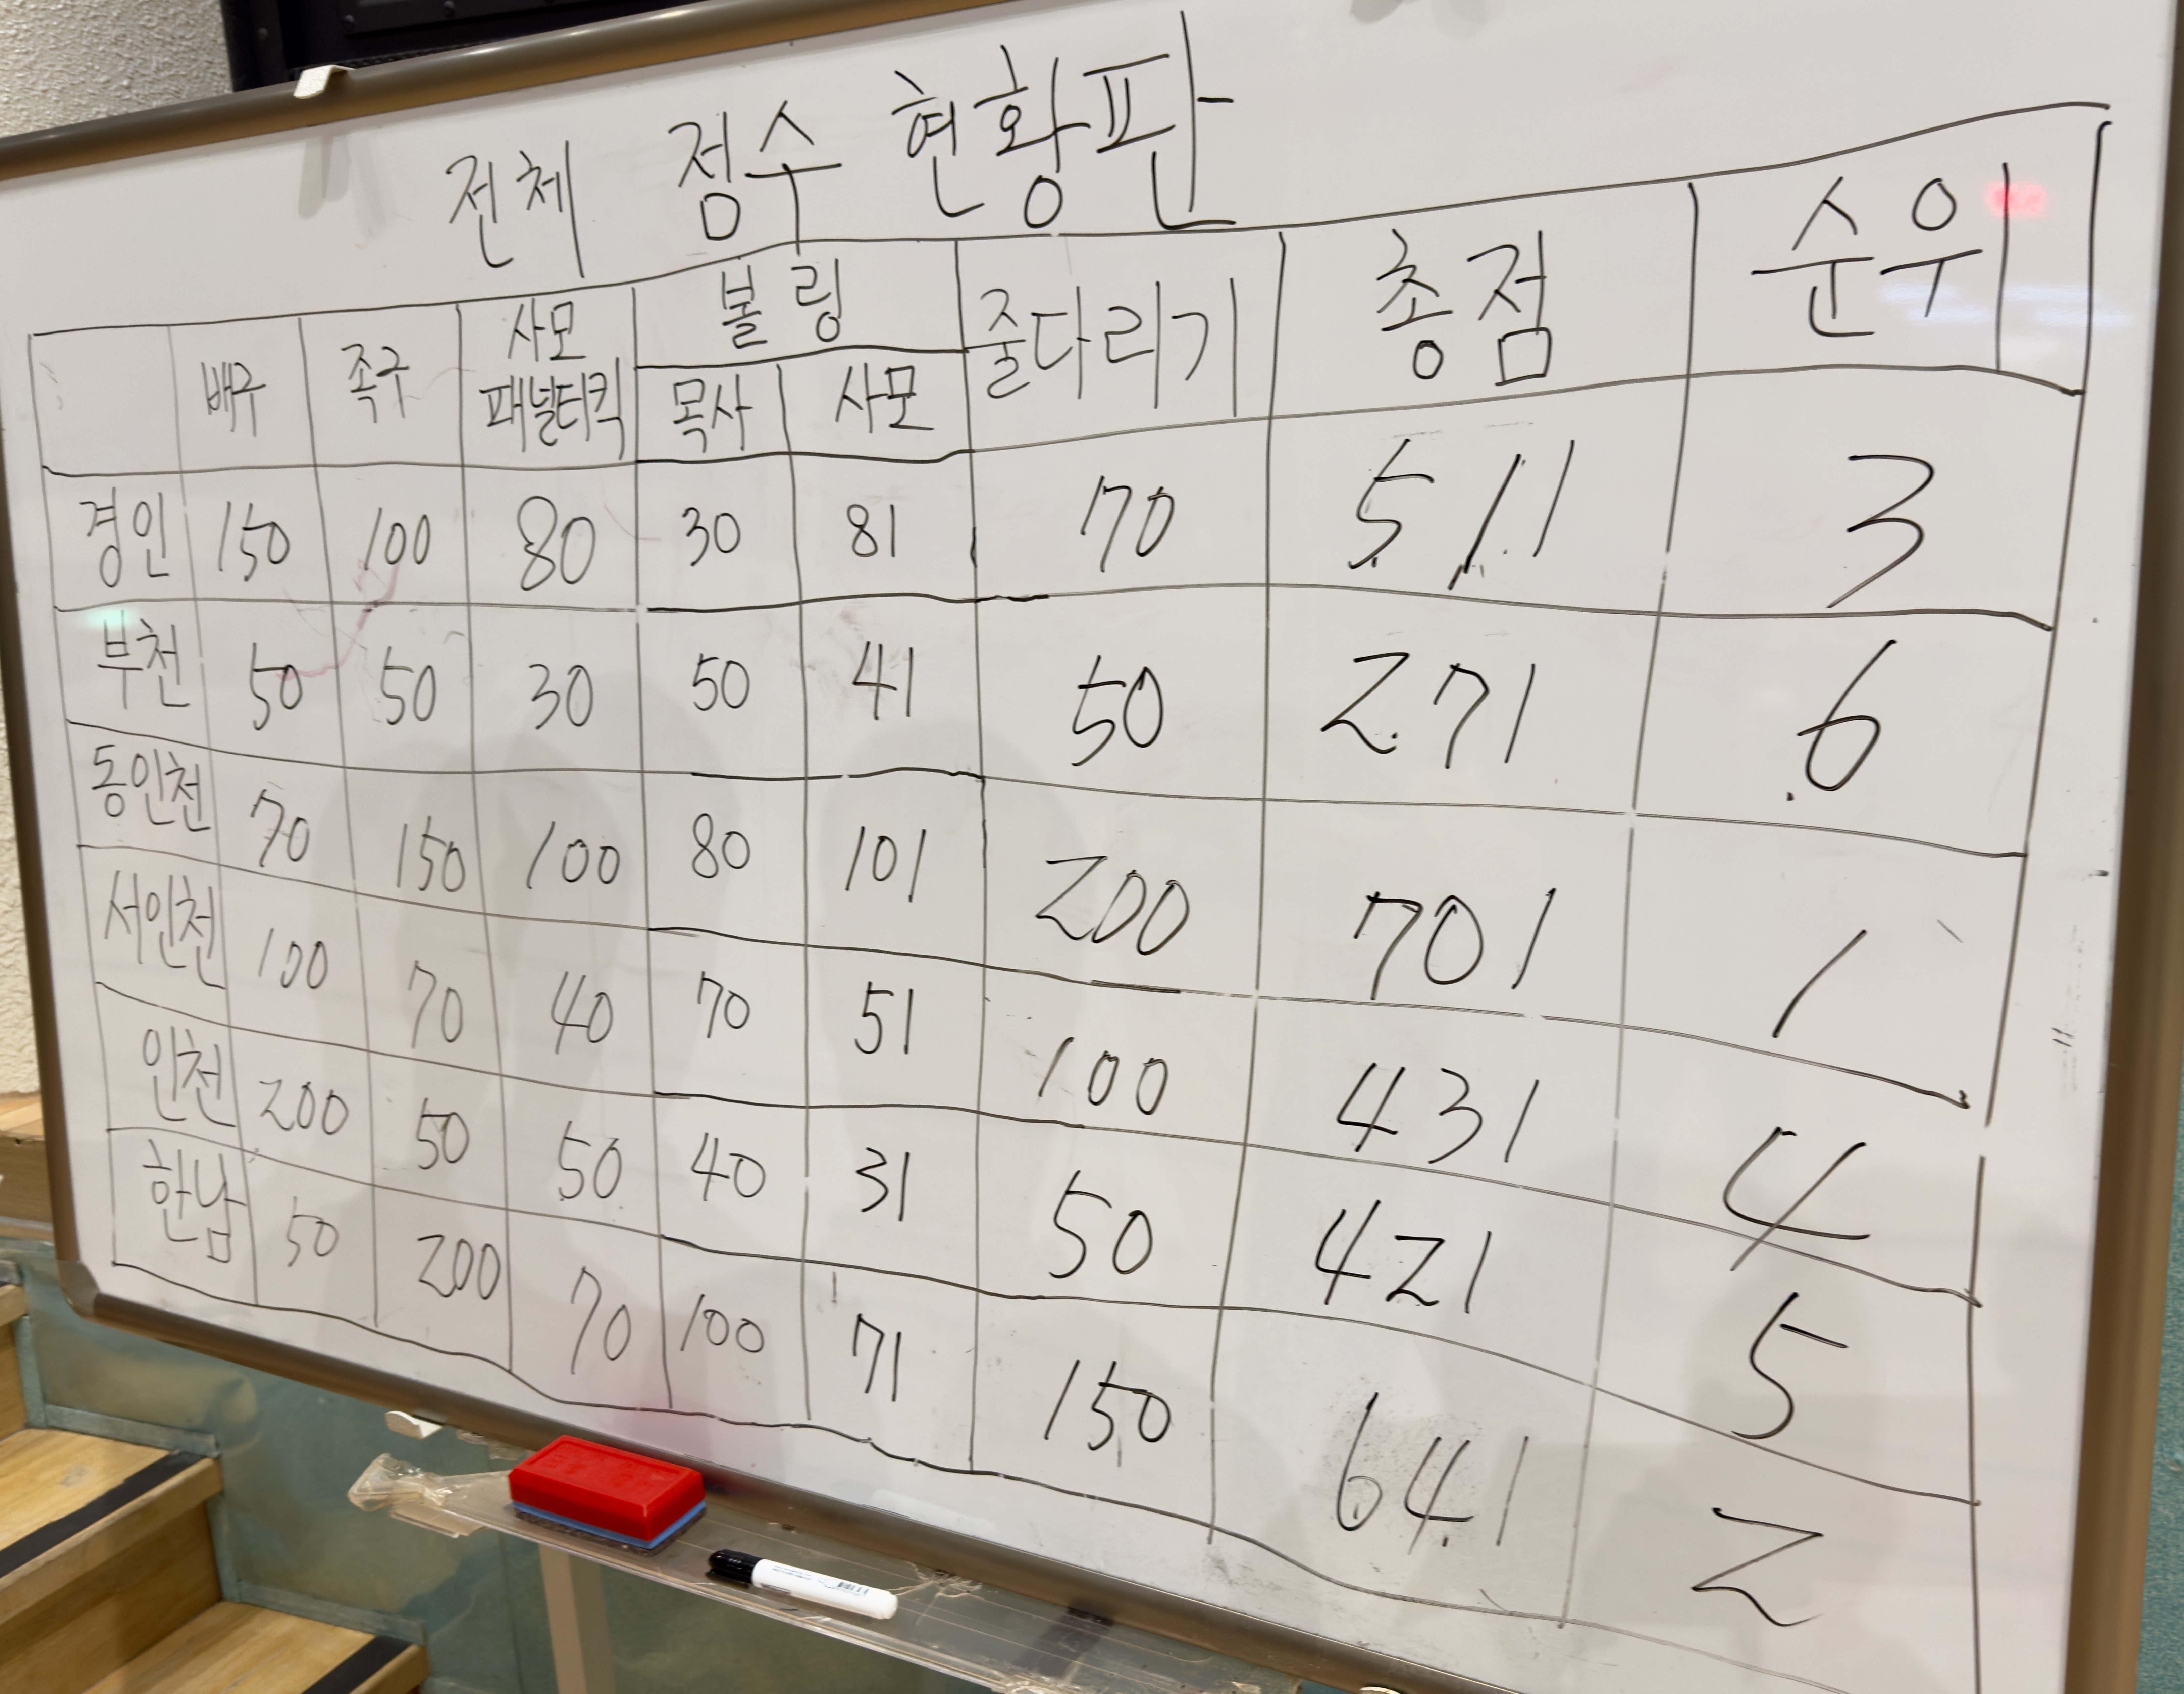 전체 점수 현황판
배구 족구 사모 패널티킥 볼링 줄다리기 총점 순위
목사 사모
경인 150 100 80 30 81 70 511 3
부천 50 50 30 50 41 50 271 6
동인천 70 150 100 80 101 200 701 1
서인천 100 70 40 70 51 100 431 4
인천 200 50 50 40 31 50 421 5
한남 50 200 70 100 71 150 641 2